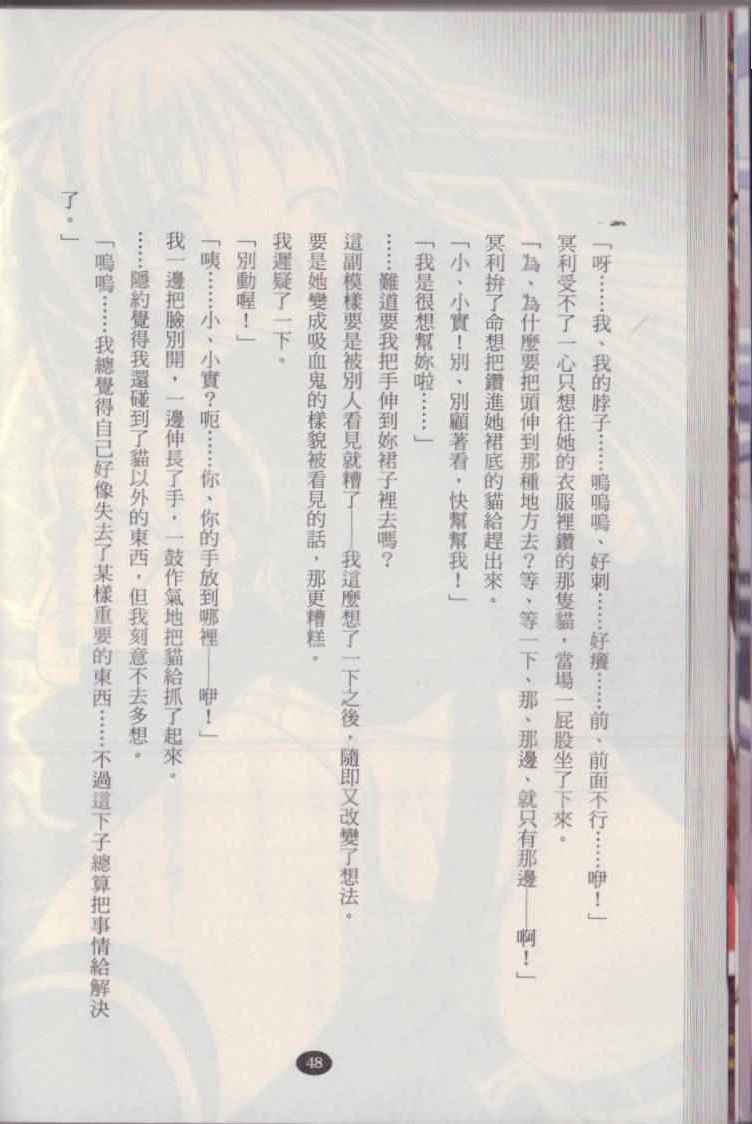 「呀……我、我的脖子……嗚嗚嗚、好刺……好癢……前、前面不行……咿！」
冥利受不了一心只想往她的衣服裡鑽的那隻貓，當場一屁股坐了下來。
「為、為什麼要把頭伸到那種地方去？等、等一下、那、那邊、就只有那邊——啊！」
冥利拚了命想把鑽進她裙底的貓給趕出來。
「小、小實！別、別顧著看，快幫幫我！」
「我是很想幫妳啦……」
……難道要我把手伸到妳裙子裡去嗎？
這副模樣要是被別人看見就糟了——我這麼想了一下之後，隨即又改變了想法。
要是她變成吸血鬼的樣貌被看見的話，那更糟糕。
我遲疑了一下。
「別動喔！」
「咦……小、小實？呃……你、你的手放到哪裡——咿！」
我一邊把臉別開，一邊伸長了手，一鼓作氣地把貓給抓了起來。
……隱約覺得我還碰到了貓以外的東西，但我刻意不去多想。
「嗚嗚……我總覺得自己好像失去了某樣重要的東西……不過這下子總算把事情給解決
了。」
48